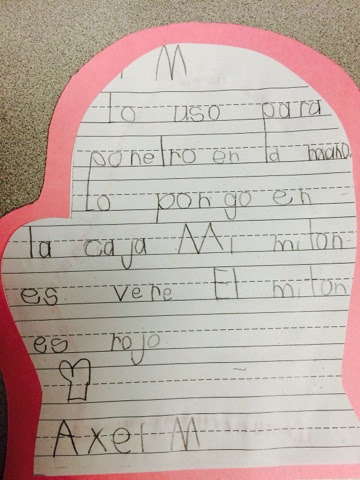 M
Lo uso para
ponetro en la mano.
Lo pongo en
la caja Mi miton
es vere El miton
es rojo
Axel M